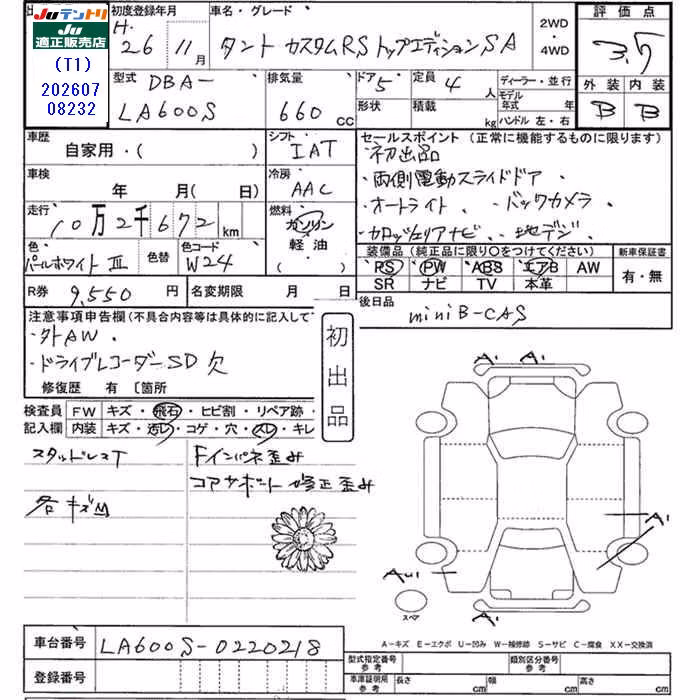 Juテントリ
Ju適正販売店
(T1)
202607
08232
初度登録年月
H.
26年11月
車名・グレード
タント カスタムRS トップエディションSA
2WD
・
4WD
評価点
3.5
外装 内装
B B
型式
DBA-
LA600S
排気量
660 CC
ドア
5
形状
定員
4人
積載
kg
ディーラー・並行
モデル
年式 年
ハンドル 左・右
車歴
自家用・( )
シフト
IAT
セールスポイント (正常に機能するものに限ります)
・初出品
・両側電動スライドドア、
・オートライト、・バックカメラ、
・カロッツェリアナビ、・地デジ、
車検
年 月( 日)
冷房
AAC
走行
10万2千672 km
燃料
ガソリン
・
軽油
( )
色
パールホワイトⅢ
色替
色コード
W24
装備品 (純正品に限り○をつけてください)
新車保証書
PS PW ABS エアB AW
SR ナビ TV 本革
有・無
R券 9,550 円
名変期限 月 日
後日品
miniB-CAS
注意事項申告欄(不具合内容等は具体的に記入して
・外AW、
・ドライブレコーダーSD欠
修復歴 有 〔箇所
初出品
検査員
記入欄
FW キズ・飛石・ヒビ割・リペア跡・
内装 キズ・汚レ・コゲ・穴・スレ・キレ
スタッドレスT
各キズM
Fインパネ歪み
コアサポート修正歪み
A1 A1
A1
AW1
A1
スペア
A−キズ E−エクボ U−凹み W−補修跡 S−サビ C−腐食 XX−交換済
車台番号 LA600S-0220218
登録番号
型式指定番号
参考
類別区分番号
参考
車庫証明用
参考
長さ cm 幅 cm 高さ cm